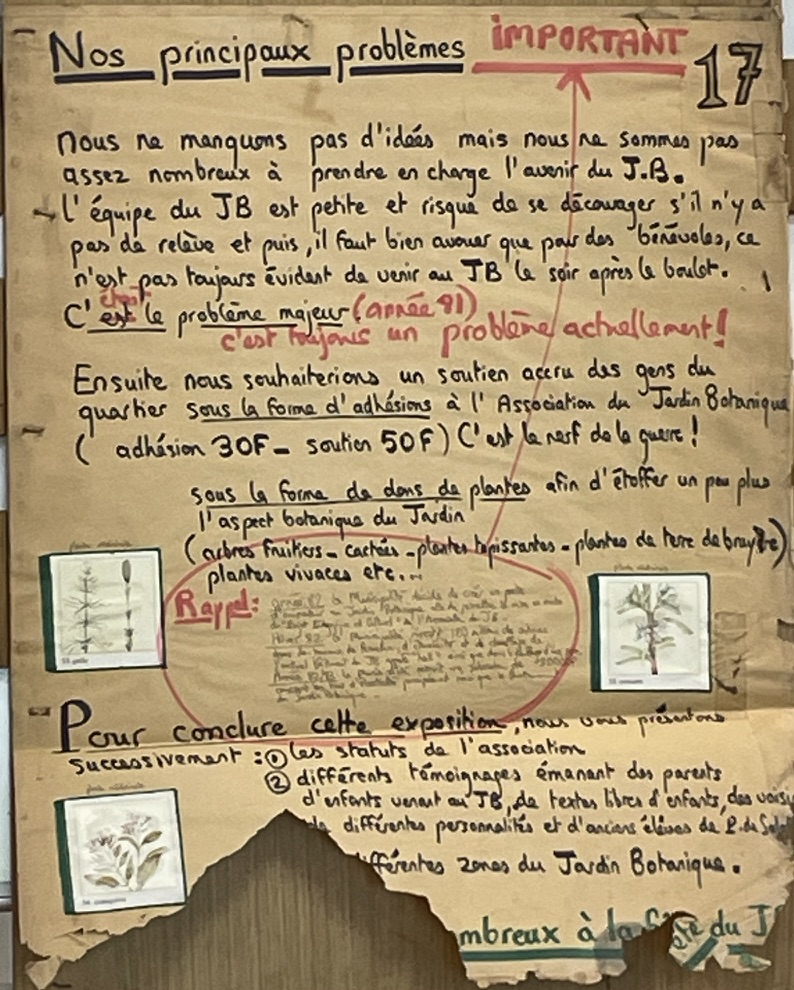 Nos principaux problèmes IMPORTANT 17
nous ne manquons pas d'idées mais nous ne sommes pas
assez nombreux à prendre en charge l'avenir du J.B.
L'équipe du JB est petite et risque de se décourager s'il n'y a
pas de relève et puis, il faut bien avouer que pour des bénévoles, ce
n'est pas toujours évident de venir au JB le soir après le boulot.
était
C'est le problème majeur (année 81)
c'est toujours un problème actuellement!
Ensuite nous souhaiterions un soutien accru des gens du
quartier sous la forme d'adhésions à l'Association du Jardin Botanique
( adhésion 30F - soutien 50F) C'est le nerf de la guerre !
sous la forme de dons de plantes afin d'étoffer un peu plus
l'aspect botanique du Jardin
(arbres fruitiers - cactées - plantes tapissantes - plantes de terre de bruyère)
plantes vivaces etc...
Rappel:
Pour conclure cette exposition, nous vous présentons
successivement : ① les statuts de l'association
② différents témoignages émanant des parents
d'enfants venant au JB, de textes libres d'enfants, des voisi
de différentes personnalités et d'anciens élèves de
ifférentes zones du Jardin Botanique.
mbreux à la fête du J